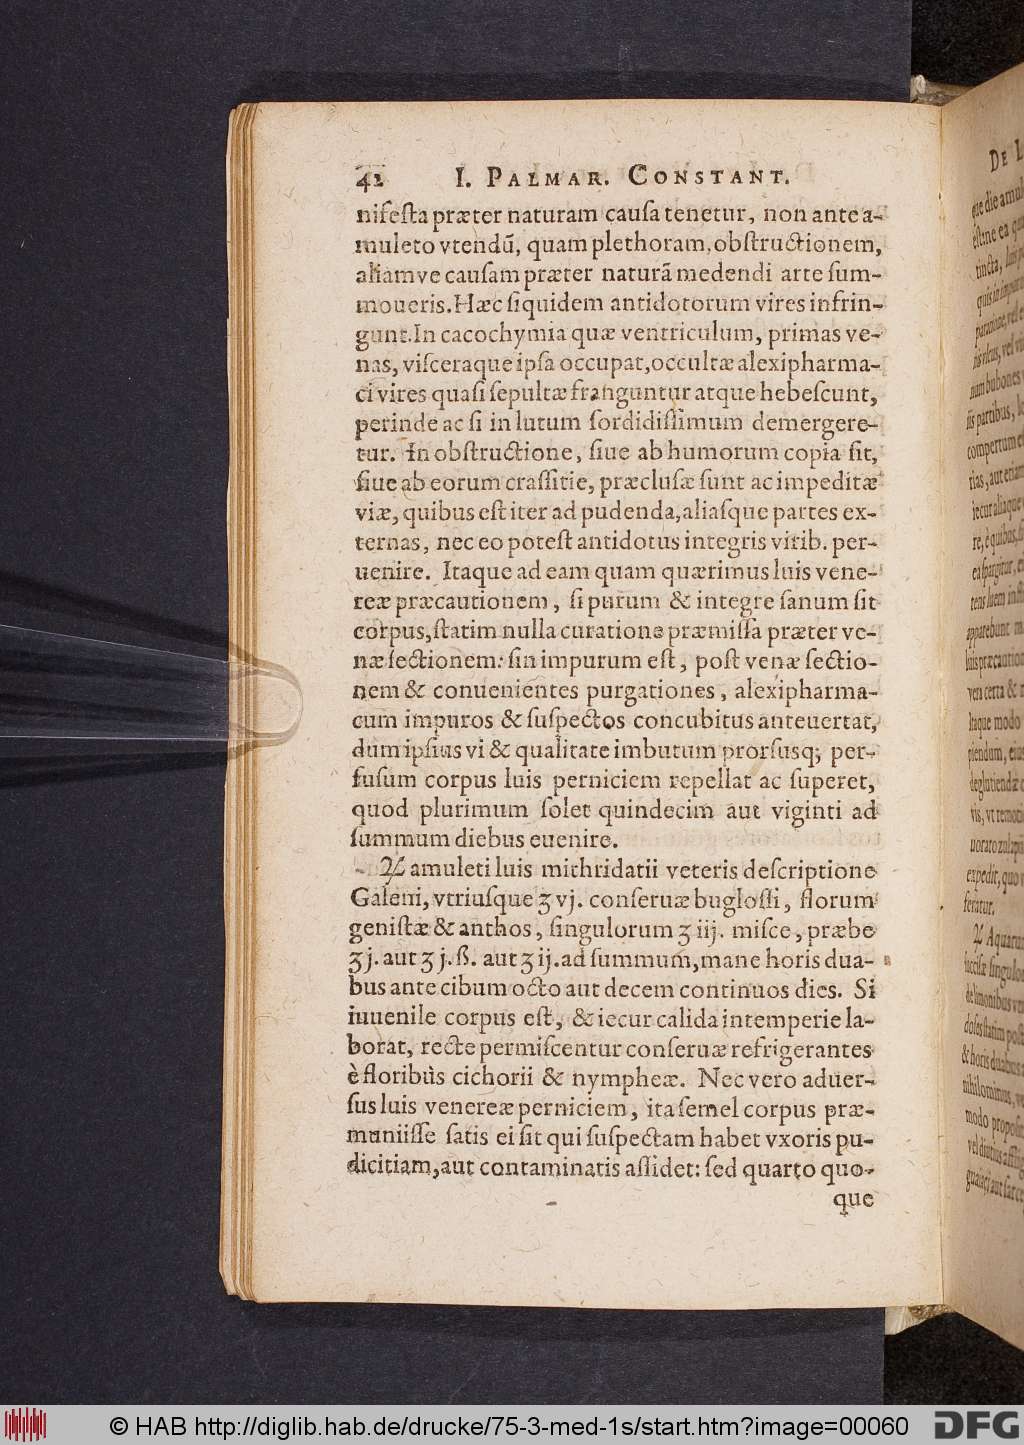 42 I. PALMAR. CONSTANT.
nifesta præter naturam causa tenetur, non ante a-
muleto vtendũ, quam plethoram, obstructionem,
aliamve causam præter naturã medendi arte sum-
moueris. Hæc siquidem antidotorum vires infrin-
gunt. In cacochymia quæ ventriculum, primas ve-
nas, visceraque ipsa occupat, occultæ alexipharma-
ci vires quasi sepultæ franguntur atque hebescunt,
perinde ac si in lutum sordidissimum demergere-
tur. In obstructione, siue ab humorum copia sit,
siue ab eorum crassitie, præclusæ sunt ac impeditæ
viæ, quibus est iter ad pudenda, aliasque partes ex-
ternas, nec eo potest antidotus integris virib. per-
uenire. Itaque ad eam quam quærimus luis vene-
reæ præcautionem, si purum & integre sanum sit
corpus, statim nulla curatione præmissa præter ve-
næ sectionem: sin impurum est, post venæ sectio-
nem & conuenientes purgationes, alexipharma-
cum impuros & suspectos concubitus anteuertat,
dum ipsius vi & qualitate imbutum prorsusq; per-
fusum corpus luis perniciem repellat ac superet,
quod plurimum solet quindecim aut viginti ad
summum diebus euenire.
♃ amuleti luis mithridatii veteris descriptione
Galeni, vtriusque ʒ vj. conseruæ buglossi, florum
genistæ & anthos, singulorum ʒ iij. misce, præbe
ʒ j. aut ʒ j. ß. aut ʒ ij. ad summum, mane horis dua-
bus ante cibum octo aut decem continuos dies. Si
iuuenile corpus est, & iecur calida intemperie la-
borat, recte permiscentur conseruæ refrigerantes
è floribus cichorii & nympheæ. Nec vero aduer-
sus luis venereæ perniciem, ita semel corpus præ-
muniisse satis ei sit qui suspectam habet vxoris pu-
dicitiam, aut contaminatis assidet: sed quarto quo-
que
DE L
tincta,
iis partibus,
compertum
iecur aliaque
apparebunt
Itaque modo
deglutiendæ
expedit, quo
feratur.
♃ Aquarum
modo
© HAB http://diglib.hab.de/drucke/75-3-med-1s/start.htm?image=00060
DFG